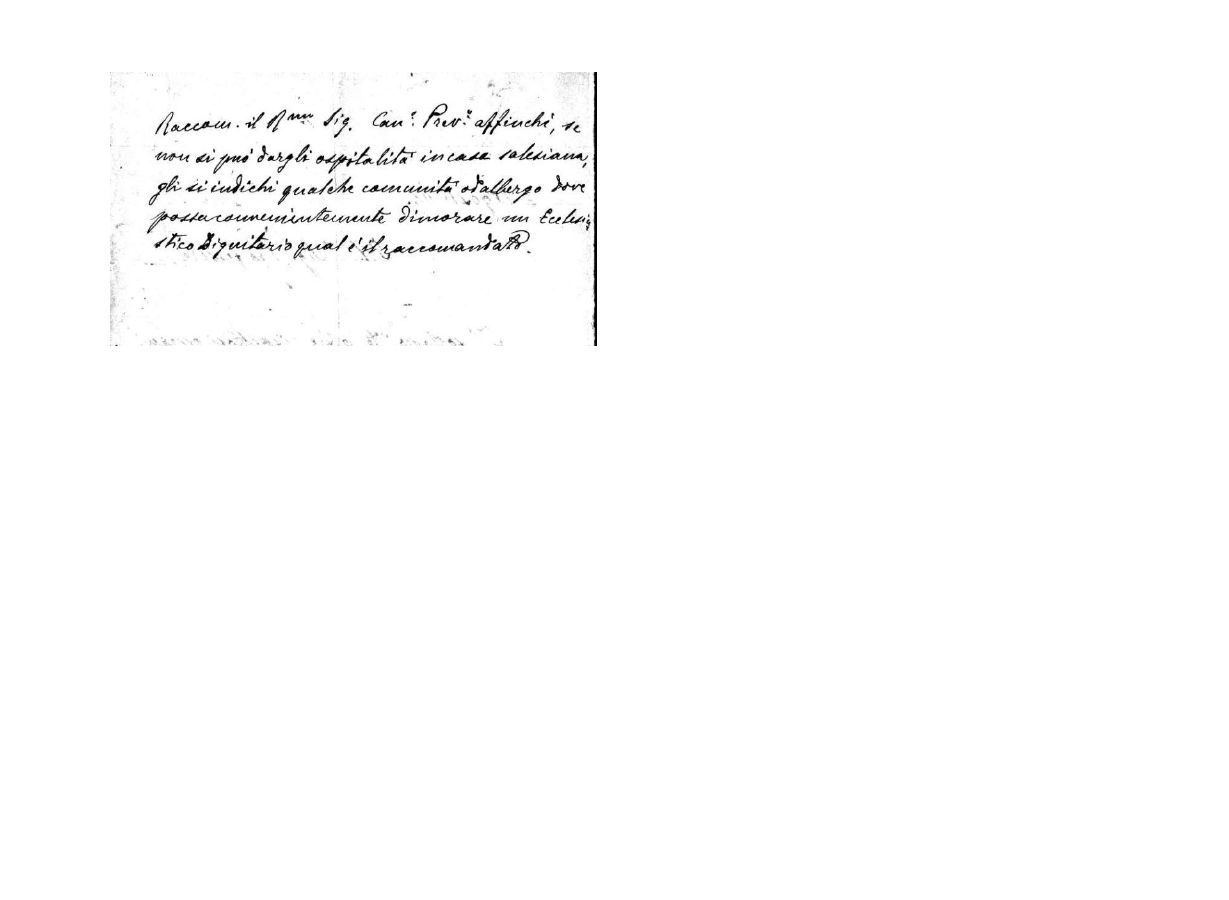 Raccom. il R.mo Sig. Can.º Prev.º affinchè, se
non si può dargli ospitalità in casa salesiana,
gli si indichi qualche comunità od albergo dove
possa convenientemente dimorare un Ecclesia
stico Dignitario qual è il raccomandato.